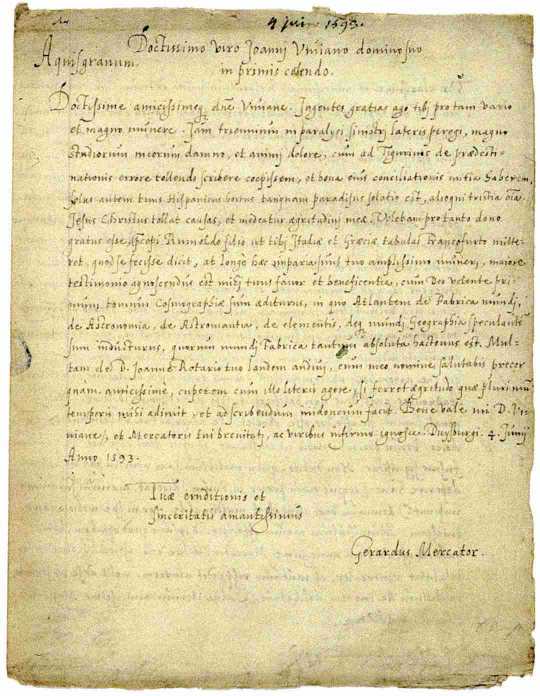 4 junii 1593.
Doctissimo viro Joannj Viviano domino suo
Aquisgranum.
in primis colendo.
Doctissime amicissimeq, dne Viviane. Ingentes gratias ago tibj pro tam vario
et magno munere. Jam triennium in paralysi sinistrj lateris peregi, magno
studiorum meorum damno, et animj dolore, cum ad Tigurinos de praedesti-
nationis errore tollendo scribere coepissem, et bona eius conciliationis initia haberem,
solus autem tuus Hispanicus hortus tanquam paradisus solatio est, absogni tristia oia.
Jesus Christus tollat causas, et medeatur aegritudinj meae. Volebam pro tanto dono
gratus esse, scripsi Rumoldo filio ut tibj Italiae et Graeciae tabulas Francofurto mitte-
ret, quod se fecisse dicit, at longe haec imparia sunt tuo amplissimo munerj, maiore
testimonio agnoscendus est mihj tuus favor et beneficentia, cum Deo volente pri-
mum tomum Cosmographiae sum aediturus, in quo Atlantem de Fabrica mundj,
de Astronomia, de Astromantia, de elementis, deq mundj Geographia speculante
sum inducturus, quorum mundj Fabrica tantum absoluta hactenus est. Mul-
tam de D. Joanne Notario tuo laudem audivj, eum meo nomine salutabis precor
quam amicissime, cuperem cum eo literis agere, si ferret aegritudo quae plurimum
temporis mihi adimit, et ad scribendum minorem facit. Bene vale mi D. Vi-
viane, et Mercatoris tui brevitatj, ac viribus infirmis ignosce. Duysburgi. 4. Junij
Anno 1593.
Tuae eruditionis et
sinceritatis amantissimus
Gerardus Mercator.